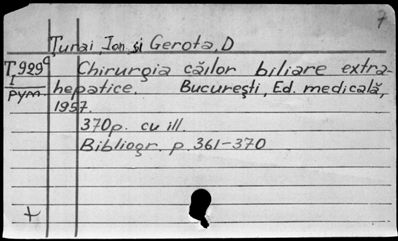 7
Țurai, Ion și Gerota, D
T.929c Chirurgia căilor biliare extra-
I
pym hepatice. București, Ed. medicală,
1957.
370p. cu ill.
Bibliogr. p. 361-370
+